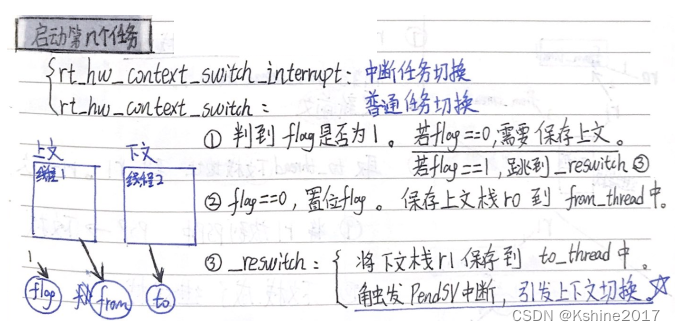 启动第n个任务
rt_hw_context_switch_interrupt: 中断任务切换
rt_hw_context_switch: 普通任务切换
① 判到 flag是否为1。若flag==0,需要保存上文。
若flag==1,跳到_reswitch ③
上文 下文
线程1 线程2
② flag==0,置位flag。保存上文栈r0 到 from_thread中。
③ _reswitch: 将下文栈r1保存到 to_thread中。
触发PendSV中断,引发上下文切换。☆
1
flag from to
CSDN @Kshine2017